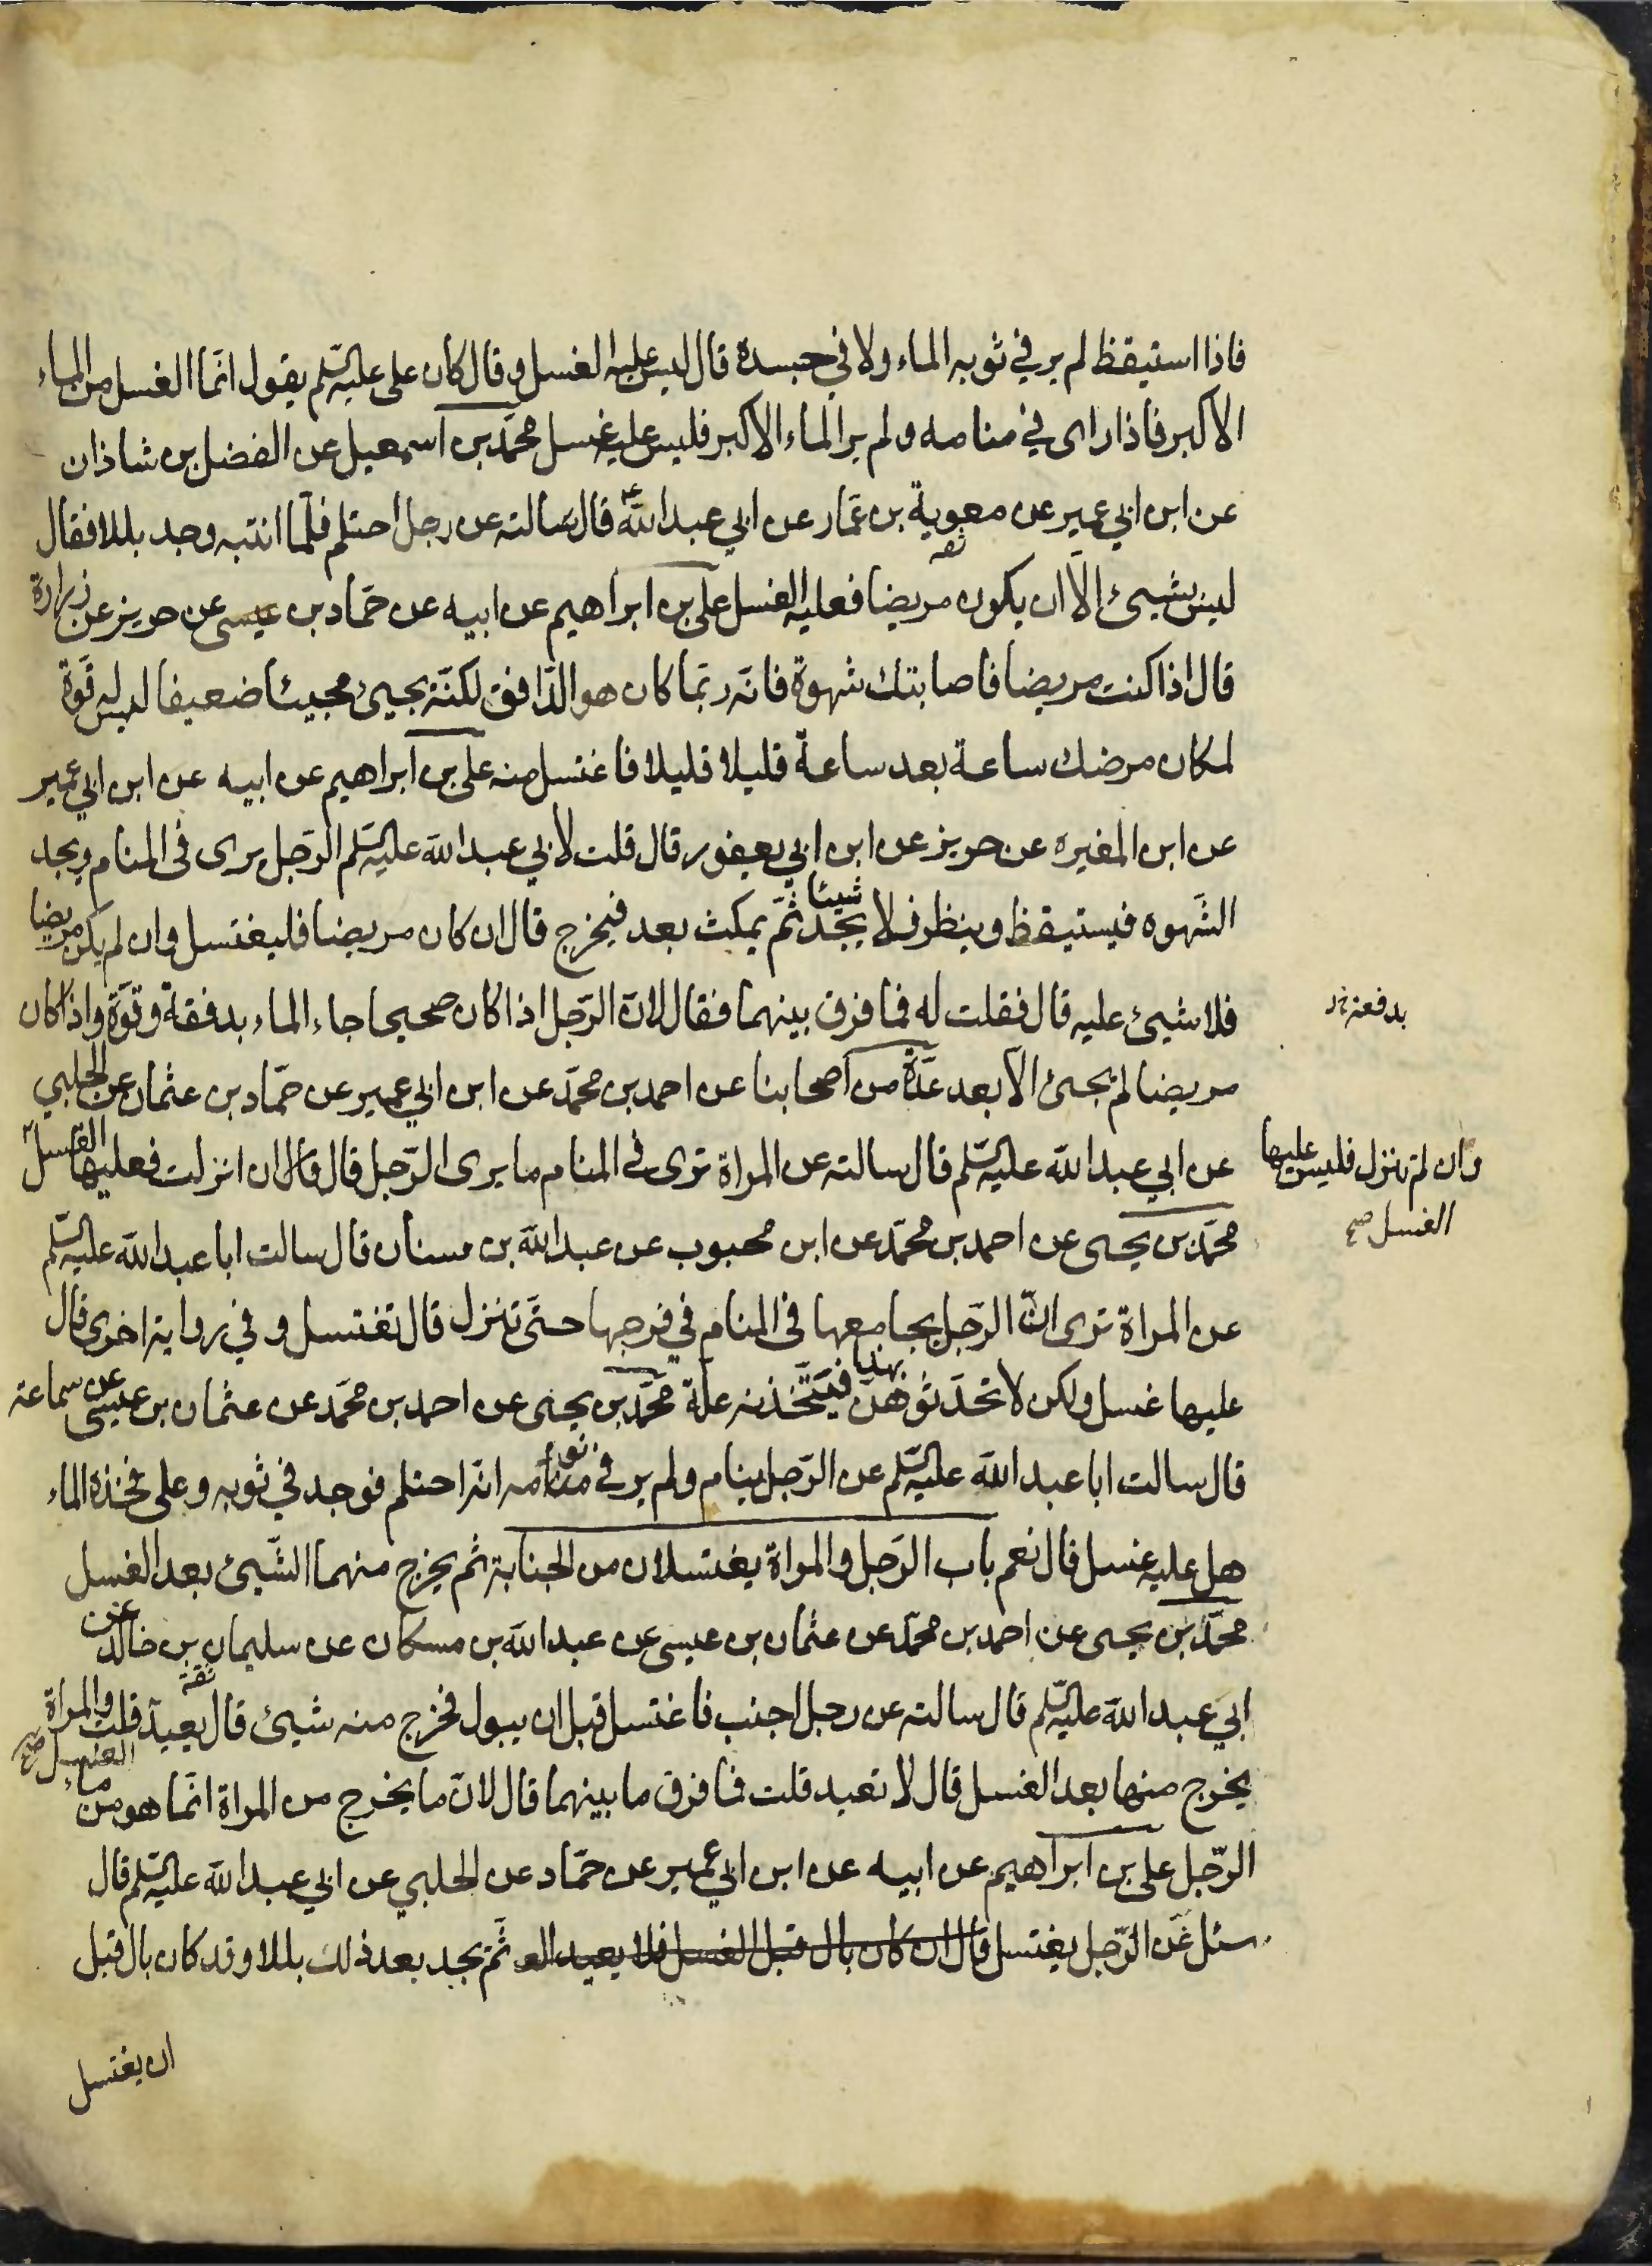 فاذا استيقظ لم ير في ثوبه الماء ولا في جسده قال ليس عليه الغسل وقال كان علي عليه السّلم يقول انّما الغسل من الماء
الاكبر فاذا راى في منامه ولم ير الماء الاكبر فليس عليه غسل محمّد بن اسمعيل عن الفضل بن شاذان
عن ابن ابي عمير عن معوية بن عمّار عن ابي عبد الله ع قال سالته عن رجل احتلم فلمّا انتبه وجد بللا فقال
ليس بشيئ الّا ان يكون مريضا فعليه الغسل علي بن ابراهيم عن ابيه عن حمّاد بن عيسى عن حريز عن زرارة
قال اذا كنت مريضا فاصابتك شهوة فانّه ربّما كان هو الدّافق لكنّه يجيئ مجيئا ضعيفا ليس له قوّة
لمكان مرضك ساعة بعد ساعة قليلا قليلا فاغتسل منه علي بن ابراهيم عن ابيه عن ابن ابي عمير
عن ابن المغيره عن حريز عن ابن ابي يعفور قال قلت لابي عبد الله عليه السّلم الرّجل يرى في المنام ويجد
الشّهوه فيستيقظ وينظر فلا يجد شيئا ثمّ يمكث بعد فيخرج قال ان كان مريضا فليغتسل وان لم يكن مريضا
فلا شيئ عليه قال فقلت له فما فرق بينهما فقال لانّ الرّجل اذا كان صحيحا جاء الماء بدفقة وقوّة واذا كان
بدفعة خ‍
مريضا لم يجئ الّا بعد عدّة من اصحابنا عن احمد بن محمّد عن ابن ابي عمير عن حمّاد بن عثمان عن الحلبي
عن ابي عبد الله عليه السّلم قال سالته عن المراة ترى في المنام ما يرى الرّجل قال ان انزلت فعليها الغسل
وان لم تنزل فليس عليها
الغسل صح
محمّد بن يحيى عن احمد بن محمّد عن ابن محبوب عن عبد الله بن سنان قال سالت ابا عبد الله عليه السّلم
عن المراة ترى انّ الرّجل يجامعها في المنام في فرجها حتّى تنزل قال تغتسل و في رواية اخرى قال
عليها غسل ولكن لا تحدّثوهنّ بهذا فيتّخذنه علّة محمّد بن يحيى عن احمد بن محمّد عن عثمان بن عيسى عن سماعة
قال سالت ابا عبد الله عليه السّلم عن الرّجل ينام ولم ير في نومه انّه احتلم فوجد في ثوبه وعلى فخذه الماء
هل عليه غسل قال نعم باب الرّجل والمراة يغتسلان من الجنابة ثم يخرج منهما الشّيئ بعد الغسل
محمّد بن يحيى عن احمد بن محمّد عن عثمان بن عيسى عن عبد الله بن مسكان عن سليمان بن خالد عن
ابي عبد الله عليه السّلم قال سالته عن رجل اجنب فاغتسل قبل ان يبول فخرج منه شيئ قال يعيد الغسل صح قلت والمراة
يخرج منها بعد الغسل قال لا تعيد قلت فما فرق ما بينهما قال لانّ ما يخرج من المراة انّما هو من ماء
الرّجل علي بن ابراهيم عن ابيه عن ابن ابي عمير عن حمّاد عن الحلبي عن ابي عبد الله عليه السّلم قال
سئل عن الرّجل يغتسل قال ان كان بال قبل الغسل فلا يعيد الغ‍ ثمّ يجد بعد ذلك بللا وقد كان بال قبل
ان يغتسل